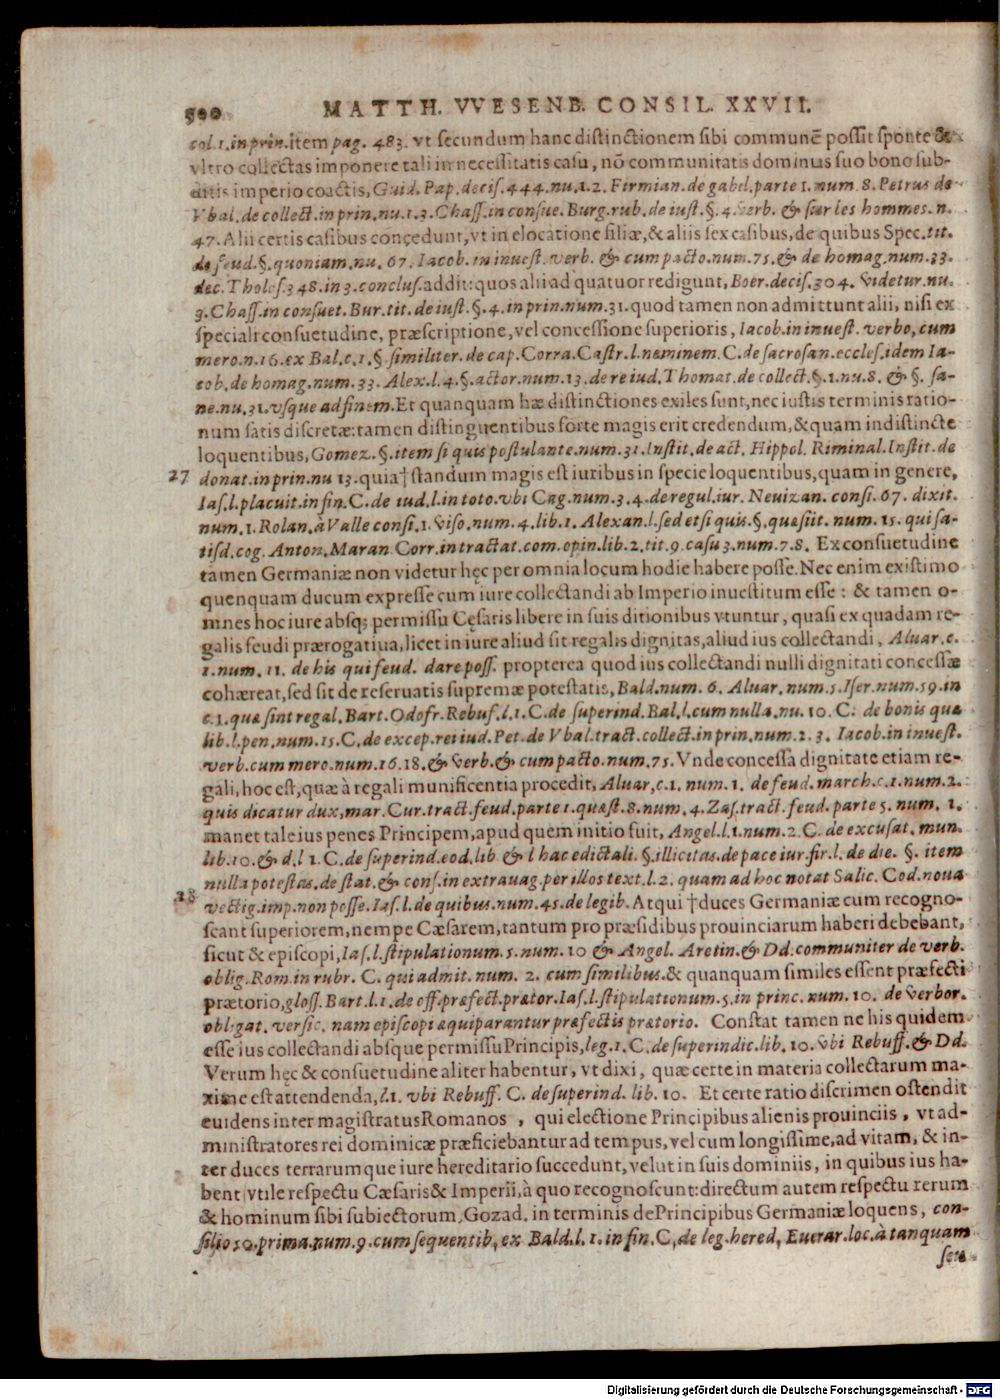 500 MATTH. VVESENB. CONSIL. XXVII.
col. 1. in prin. item pag. 483. vt secundum hanc distinctionem sibi communē possit sponte &
vltro collectas imponere tali in necessitatis casu, nō communitatis dominus suo bono sub-
ditis imperio coactis, Guid. Pap. decis. 444. nu. 1. 2. Firmian. de gabel. parte 1. num. 8. Petrus de
Vbal. de collect. in prin. nu. 1. 3. Chass. in consue. Burg. rub. de iust. §. 4. verb. & sur les hommes. n.
47. Alii certis casibus concedunt, vt in elocatione filiæ, & aliis sex casibus, de quibus Spec. tit.
de feud. §. quoniam. nu. 67. Iacob. in inuest. verb. & cum pacto. num. 75. & de homag. num. 33.
dec. Tholos. 348. in 3. conclus. addit: quos alii ad quatuor redigunt, Boer. decis. 304. videtur. nu.
3. Chass. in consuet. Bur. tit. de iust. §. 4. in prin. num. 31. quod tamen non admittunt alii, nisi ex
speciali consuetudine, præscriptione, vel concessione superioris, Iacob. in inuest. verbo, cum
mero. n. 16. ex Bal. c. 1. §. similiter. de cap. Corra. Castr. l. neminem. C. de sacrosan. eccles. idem Ia-
cob. de homag. num. 33. Alex. l. 4. §. actor. num. 13. de re iud. Thomat. de collect. §. 1. nu. 8. & §. sa-
ne. nu. 31. vsque ad finem. Et quanquam hæ distinctiones exiles sunt, nec iustis terminis ratio-
num satis discretæ: tamen distinguentibus forte magis erit credendum, & quam indistincte
loquentibus, Gomez. §. item si quis postulante. num. 31. Instit. de act. Hippol. Riminal. Instit. de
27 donat. in prin. nu 13. quia † standum magis est iuribus in specie loquentibus, quam in genere,
Ias. l. placuit. in fin. C. de iud. l. in toto. vbi Cag. num. 3. 4. de regul. iur. Neuizan. consi. 67. dixit.
num. 1. Rolan. à Valle consi. 1. viso. num. 4. lib. 1. Alexan. l. sed etsi quis. §. quæsiit. num. 15. qui sa-
tisd. cog. Anton. Maran. Corr. in tractat. com. opin. lib. 2. tit. 9. casu 3. num. 7. 8. Ex consuetudine
tamen Germaniæ non videtur hęc per omnia locum hodie habere posse. Nec enim existimo
quenquam ducum expresse cum iure collectandi ab Imperio inuestitum esse: & tamen o-
mnes hoc iure absq; permissu Cęsaris libere in suis ditionibus vtuntur, quasi ex quadam re-
galis feudi prærogatiua, licet in iure aliud sit regalis dignitas, aliud ius collectandi, Aluar. c.
1. num. 11. de his qui feud. dare poss. propterea quod ius collectandi nulli dignitati concessæ
cohæreat, sed sit de reseruatis supremæ potestatis, Bald. num. 6. Aluar. num. 5. Iser. num. 59. in
c. 1. quæ sint regal. Bart. Odofr. Rebuf. l. 1. C. de superind. Bal. l. cum nulla. nu. 10. C. de bonis quæ
lib. l. pen. num. 15. C. de excep. rei iud. Pet. de Vbal. tract. collect. in prin. num. 2. 3. Iacob. in inuest.
verb. cum mero. num. 16. 18. & verb. & cum pacto. num. 75. Vnde concessa dignitate etiam re-
gali, hoc est, quæ à regali munificentia procedit, Aluar. c. 1. num. 1. de feud. march. c. 1. num. 2.
quis dicatur dux, mar. Cur. tract. feud. parte 1. quæst. 8. num. 4. Zas. tract. feud. parte 5. num. 1.
manet tale ius penes Principem, apud quem initio fuit, Angel. l. 1. num. 2. C. de excusat. mun.
lib. 10. & d. l 1. C. de superind. eod. lib & l hac edictali. §. illicitas. de pace iur. fir. l. de die. §. item
nulla potestas. de stat. & cons. in extrauag. per illos text. l. 2. quam ad hoc notat Salic. Cod. noua
28 vectig. imp. non posse. Ias. l. de quibus. num. 45. de legib. Atqui † duces Germaniæ cum recogno-
scant superiorem, nempe Cæsarem, tantum pro præsidibus prouinciarum haberi debebant,
sicut & episcopi, Ias. l. stipulationum. 5. num. 10 & Angel. Aretin. & Dd. communiter de verb.
oblig. Rom. in rubr. C. qui admit. num. 2. cum similibus. & quanquam similes essent præfecti
prætorio, gloss. Bart. l. 1. de off. præfect. prætor. Ias. l. stipulationum. 5. in princ. num. 10. de verbor.
obligat. versic. nam episcopi æquiparantur præfectis prætorio. Constat tamen ne his quidem
esse ius collectandi absque permissu Principis, leg. 1. C. de superindic. lib. 10. vbi Rebuff. & Dd.
Verum hęc & consuetudine aliter habentur, vt dixi, quæ certe in materia collectarum ma-
xime est attendenda, l. 1. vbi Rebuff. C. de superind. lib. 10. Et certe ratio discrimen ostendit
euidens inter magistratus Romanos , qui electione Principibus alienis prouinciis, vt ad-
ministratores rei dominicæ præficiebantur ad tempus, vel cum longissime, ad vitam, & in-
ter duces terrarum que iure hereditario succedunt, velut in suis dominiis, in quibus ius ha-
bent vtile respectu Cæsaris & Imperii, à quo recognoscunt: directum autem respectu rerum
& hominum sibi subiectorum, Gozad. in terminis de Principibus Germaniæ loquens, con-
silio 50. prima. num. 9. cum sequentib. ex Bald. l. 1. in fin. C. de leg. hered. Euerar. loc. à tanquam
seu
Digitalisierung gefördert durch die Deutsche Forschungsgemeinschaft - DFG